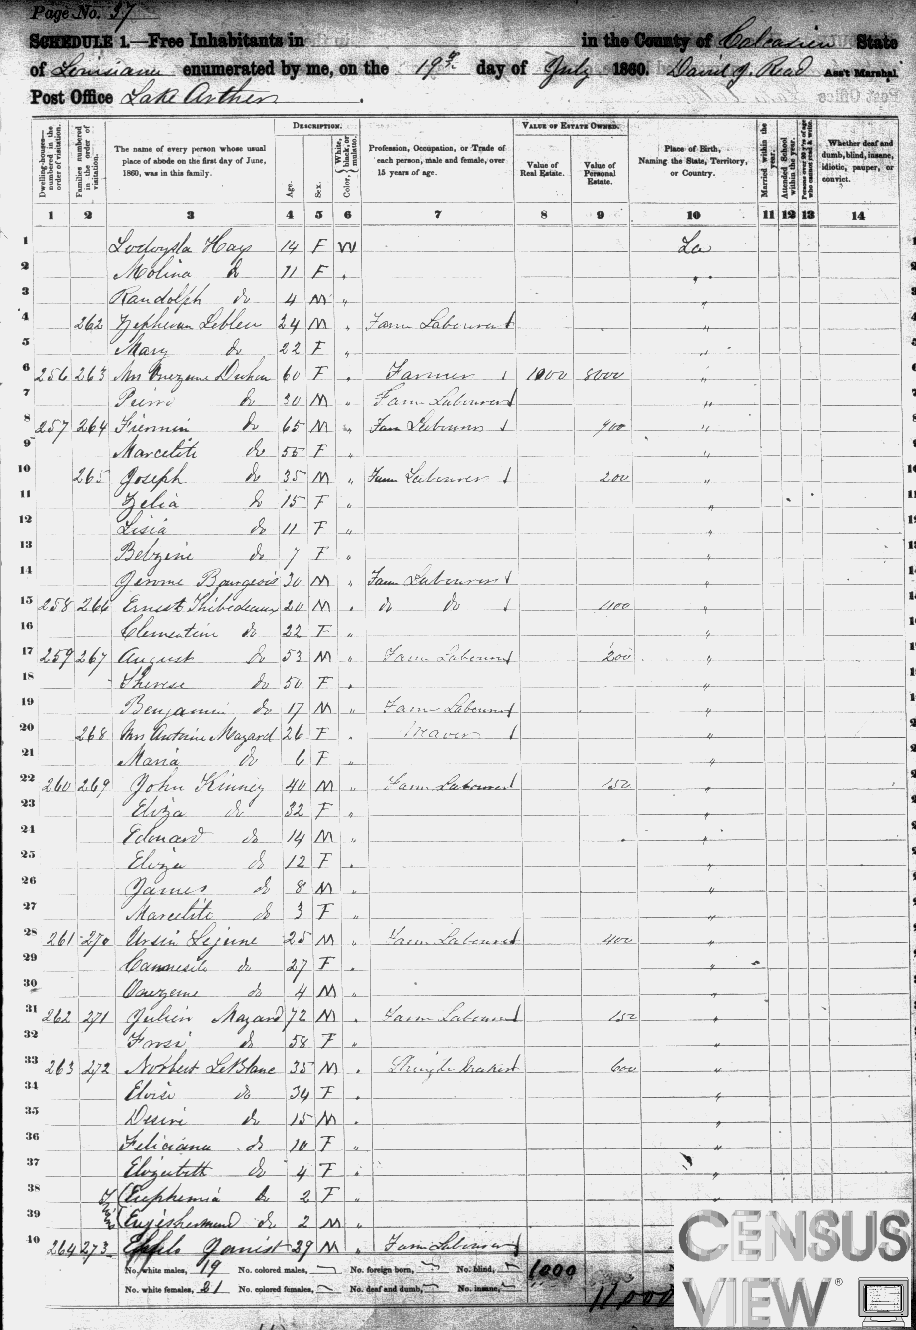 Page No. 37
SCHEDULE 1.—Free Inhabitants in in the County of Calcasieu State
of Louisiana enumerated by me, on the 19th day of July 1860. David J. Read Ass't Marshal
Post Office Lake Arthur .
Dwelling-houses—numbered in the order of visitation. Families numbered in the order of visitation. The name of every person whose usual place of abode on the first day of June, 1860, was in this family. DESCRIPTION. Age. Sex. Color, White, black, or mulatto. Profession, Occupation, or Trade of each person, male and female, over 15 years of age. VALUE OF ESTATE OWNED. Value of Real Estate. Value of Personal Estate. Place of Birth, Naming the State, Territory, or Country. Married within the year. Attended School within the year. Persons over 20 y'rs of age who cannot read & write. Whether deaf and dumb, blind, insane, idiotic, pauper, or convict.
1 2 3 4 5 6 7 8 9 10 11 12 13 14
1 Hays 14 F W La
2 Molina do 11 F "
3 Randolph do 4 M " "
4 262 Lebleu 24 M " Farm Labourer "
5 Mary do 22 F " "
6 256 263 Mrs 60 F " Farmer 1000 8000 "
7 Pierre do 30 M " Farm Labourer "
8 257 264 Firmin do 65 M " Farm Labourer 900 "
9 Marcelite do 55 F "
10 265 Joseph do 35 M " Farm Labourer 200 "
11 Zelia do 15 F " "
12 Lisia do 11 F " "
13 Belzire do 7 F " "
14 Jerome Bourgeois 30 M " Farm Labourer "
15 258 266 Ernest Thibedeaux 20 M " do do 1100 "
16 Clementine do 22 F " "
17 259 267 August do 53 M " Farm Labourer 200 "
18 Therese do 50 F " "
19 Benjamin do 17 M " Farm Labourer "
20 268 Mrs Antoine Mazard 26 F " Weaver "
21 Maria do 6 F " "
22 260 269 John Kinney 40 M " Farm Labourer 150 "
23 Eliza do 32 F " "
24 Edouard do 14 M " "
25 Eliza do 12 F " "
26 James do 8 M " "
27 Marcelite do 3 F " "
28 261 270 Ursin Lejune 25 M " Farm Labourer 400 "
29 do 27 F " "
30 Onezeme do 4 M " "
31 262 271 Julien Mazard 72 M " Farm Labourer 150 "
32 do 58 F "
33 263 272 Norbert LeBlanc 35 M " Shingle Maker 600 "
34 Eloise do 34 F " "
35 Desire do 15 M " "
36 Feliciana do 10 F " "
37 Elizabeth do 4 F " "
38 Twins Euphemia do 2 F " "
39 do 2 M "
40 264 273 29 M " Farm Labourer
No. white males, 19 No. colored males, No. foreign born, No. blind, 1000
No. white females, 21 No. colored females, No. deaf and dumb, No. insane,
CENSUS
VIEW®